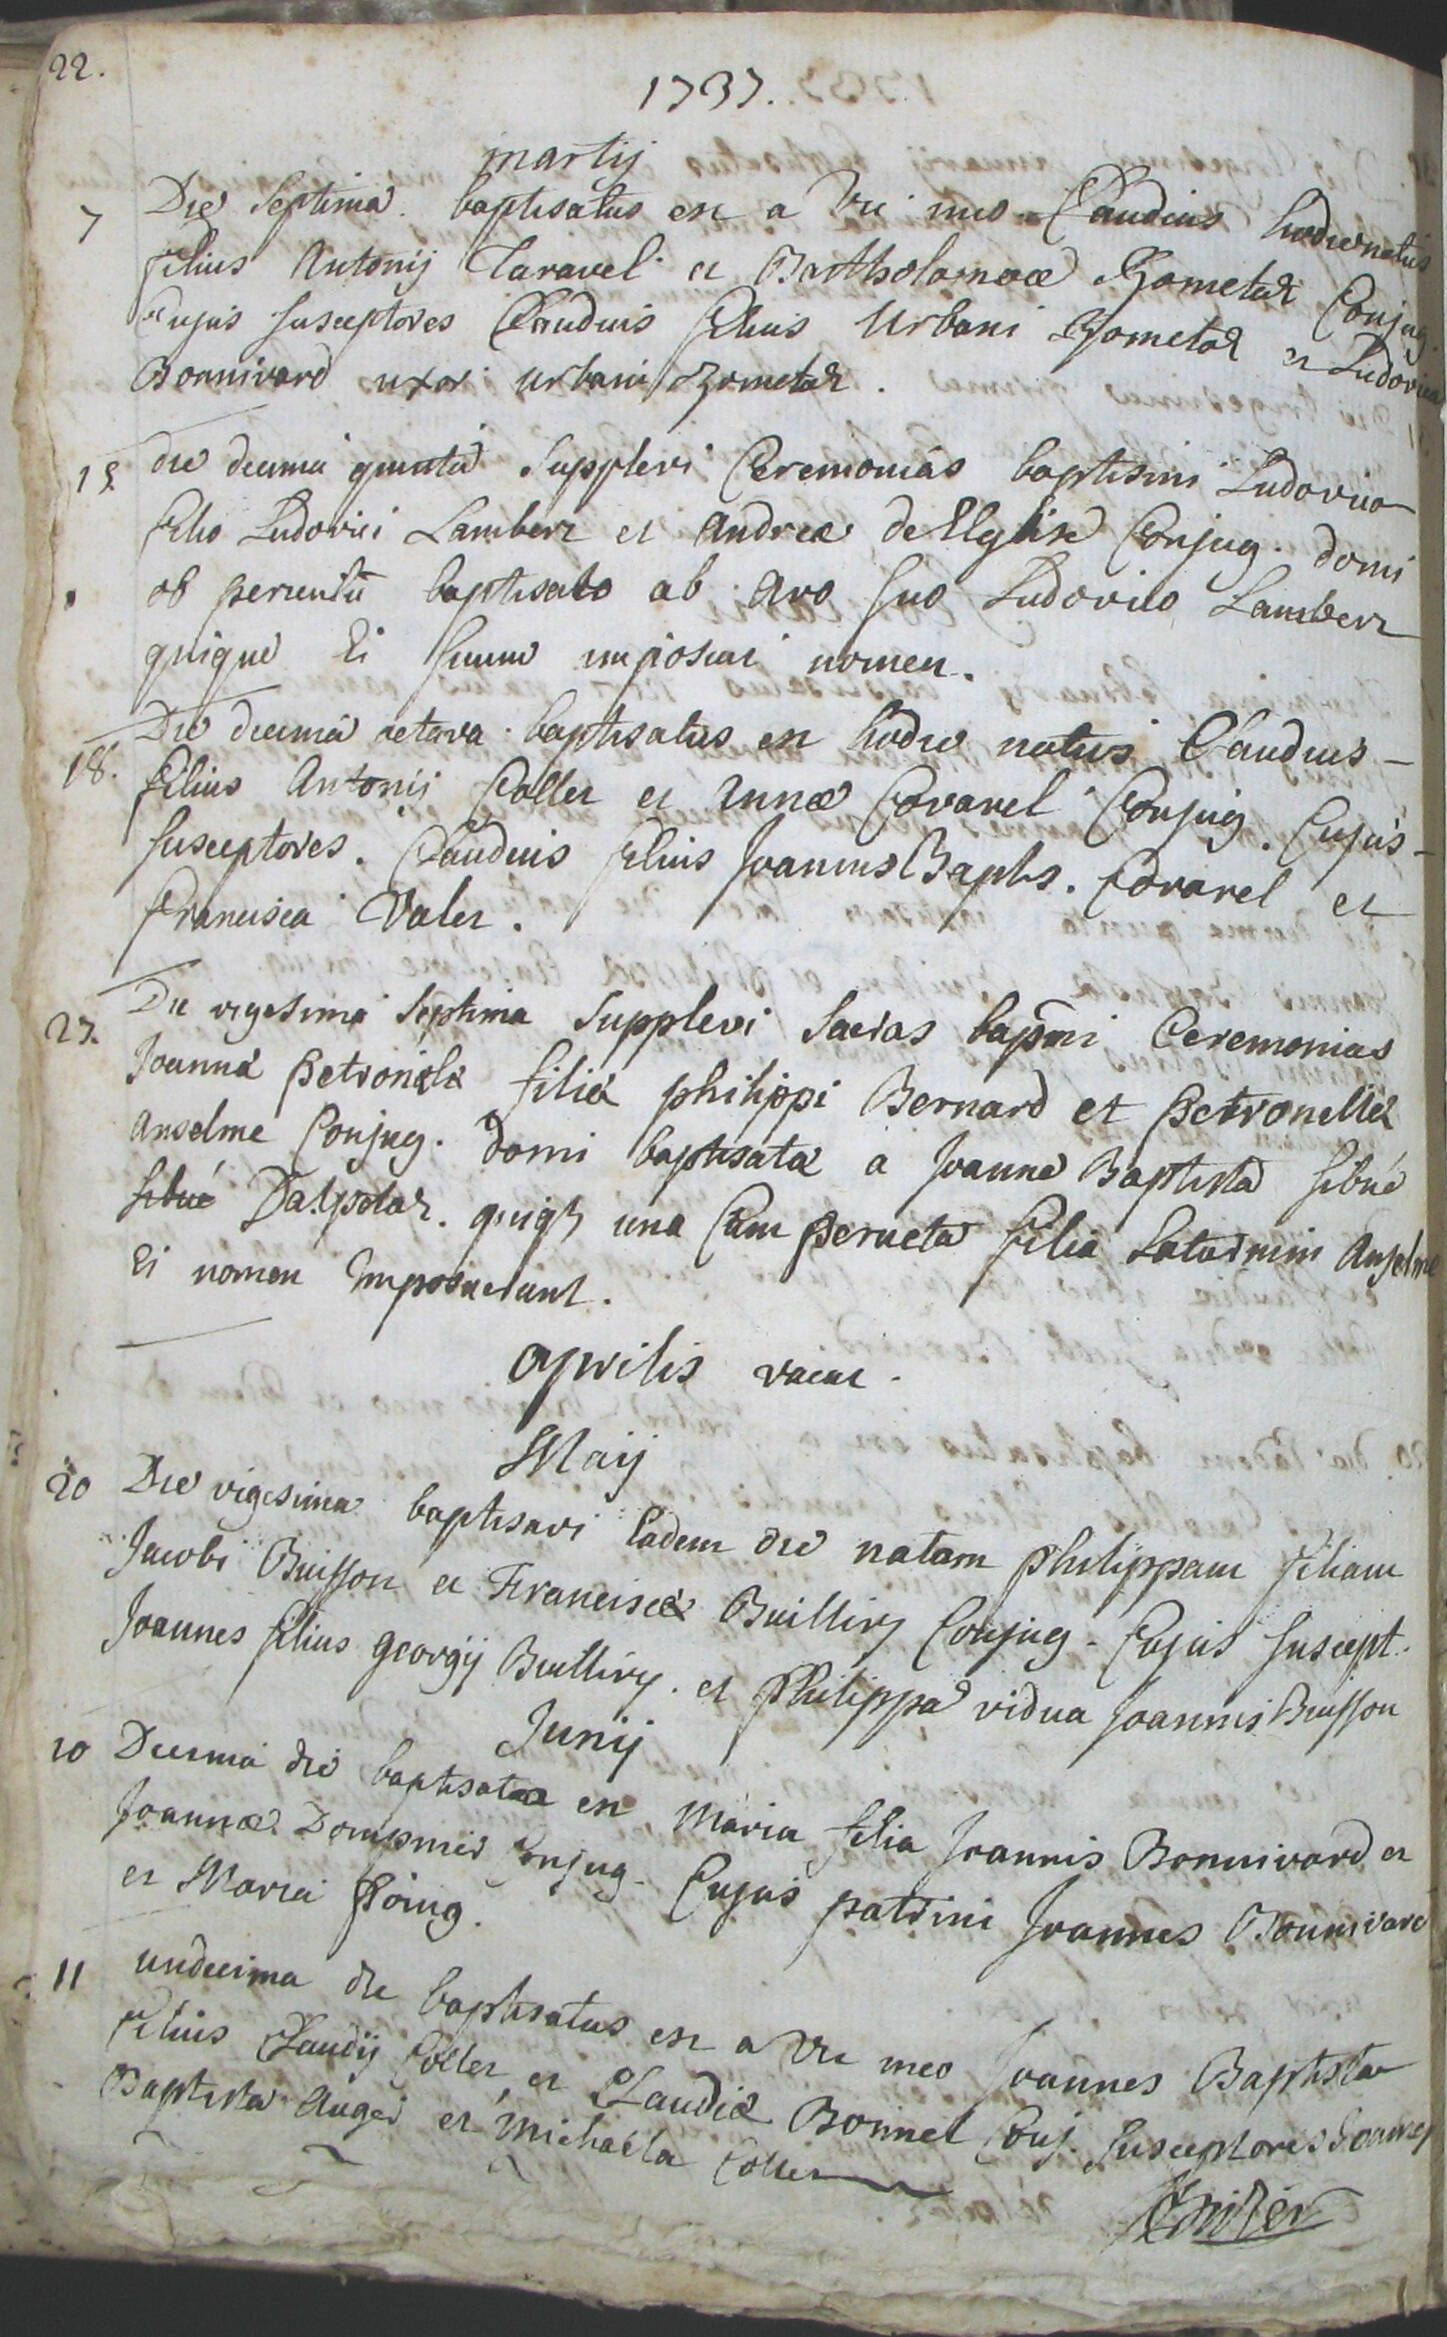 22.
1737.
martij
7 Die Septima baptisatus est a Vic° meo Claudius hodie natus
filius Antonij Taravel et Bartholomeae Gometaz Conjug.
Cujus Susceptores Claudius filius Urbani Gometaz et Ludovica
Bonnivard uxor Urbani Gometaz.
15 die decima quinta Supplevi Ceremonias baptismi Ludovico
filio Ludovici Lambert et Andreae de Eglise Conjug. domi
ob periculū baptisato ab Avo Suo Ludovico Lambert
quique Ei Suum imposuit nomen.
18. Die decima octava baptisatus est hodie natus Claudius
filius Antonij Collet et Annae Covarel Conjug. Cujus
Susceptores. Claudius filius Joannis Baptis. Covarel et
Francisca Valet.
27. Die vigesima Septima Supplevi Sacras bapmi Ceremonias
Joanna petronilla filia philippi Bernard et petronellae
Anselme Conjug. domi baptisata a Joanne Baptista Sibué
Sibué Dalpolaz. quiqz una Cum perneta filia Saturnini Anselme
Ei nomen Imposuerunt.
aprilis vacat.
Maij
20 Die vigesima baptisavi Eadem die natam philippam filiam
Jacobi Buisson et Franciscae Buillivy Conjug. Cujus Suscept.
Joannes filius georgij Buillivy. et Philippa vidua Joannis Buisson
Junij
10 Decima die baptisata est Maria filia Joannis Bonnivard et
Joannae Dompmier Conjug. Cujus patrini Joannes Bonnivard
et Maria
11 undecima die baptisatus est a Vic meo Joannes Baptista
filius Claudij Collet et Claudia Bonnel Conj. Susceptores Joannes
Baptista Auger et Michaëla Collet